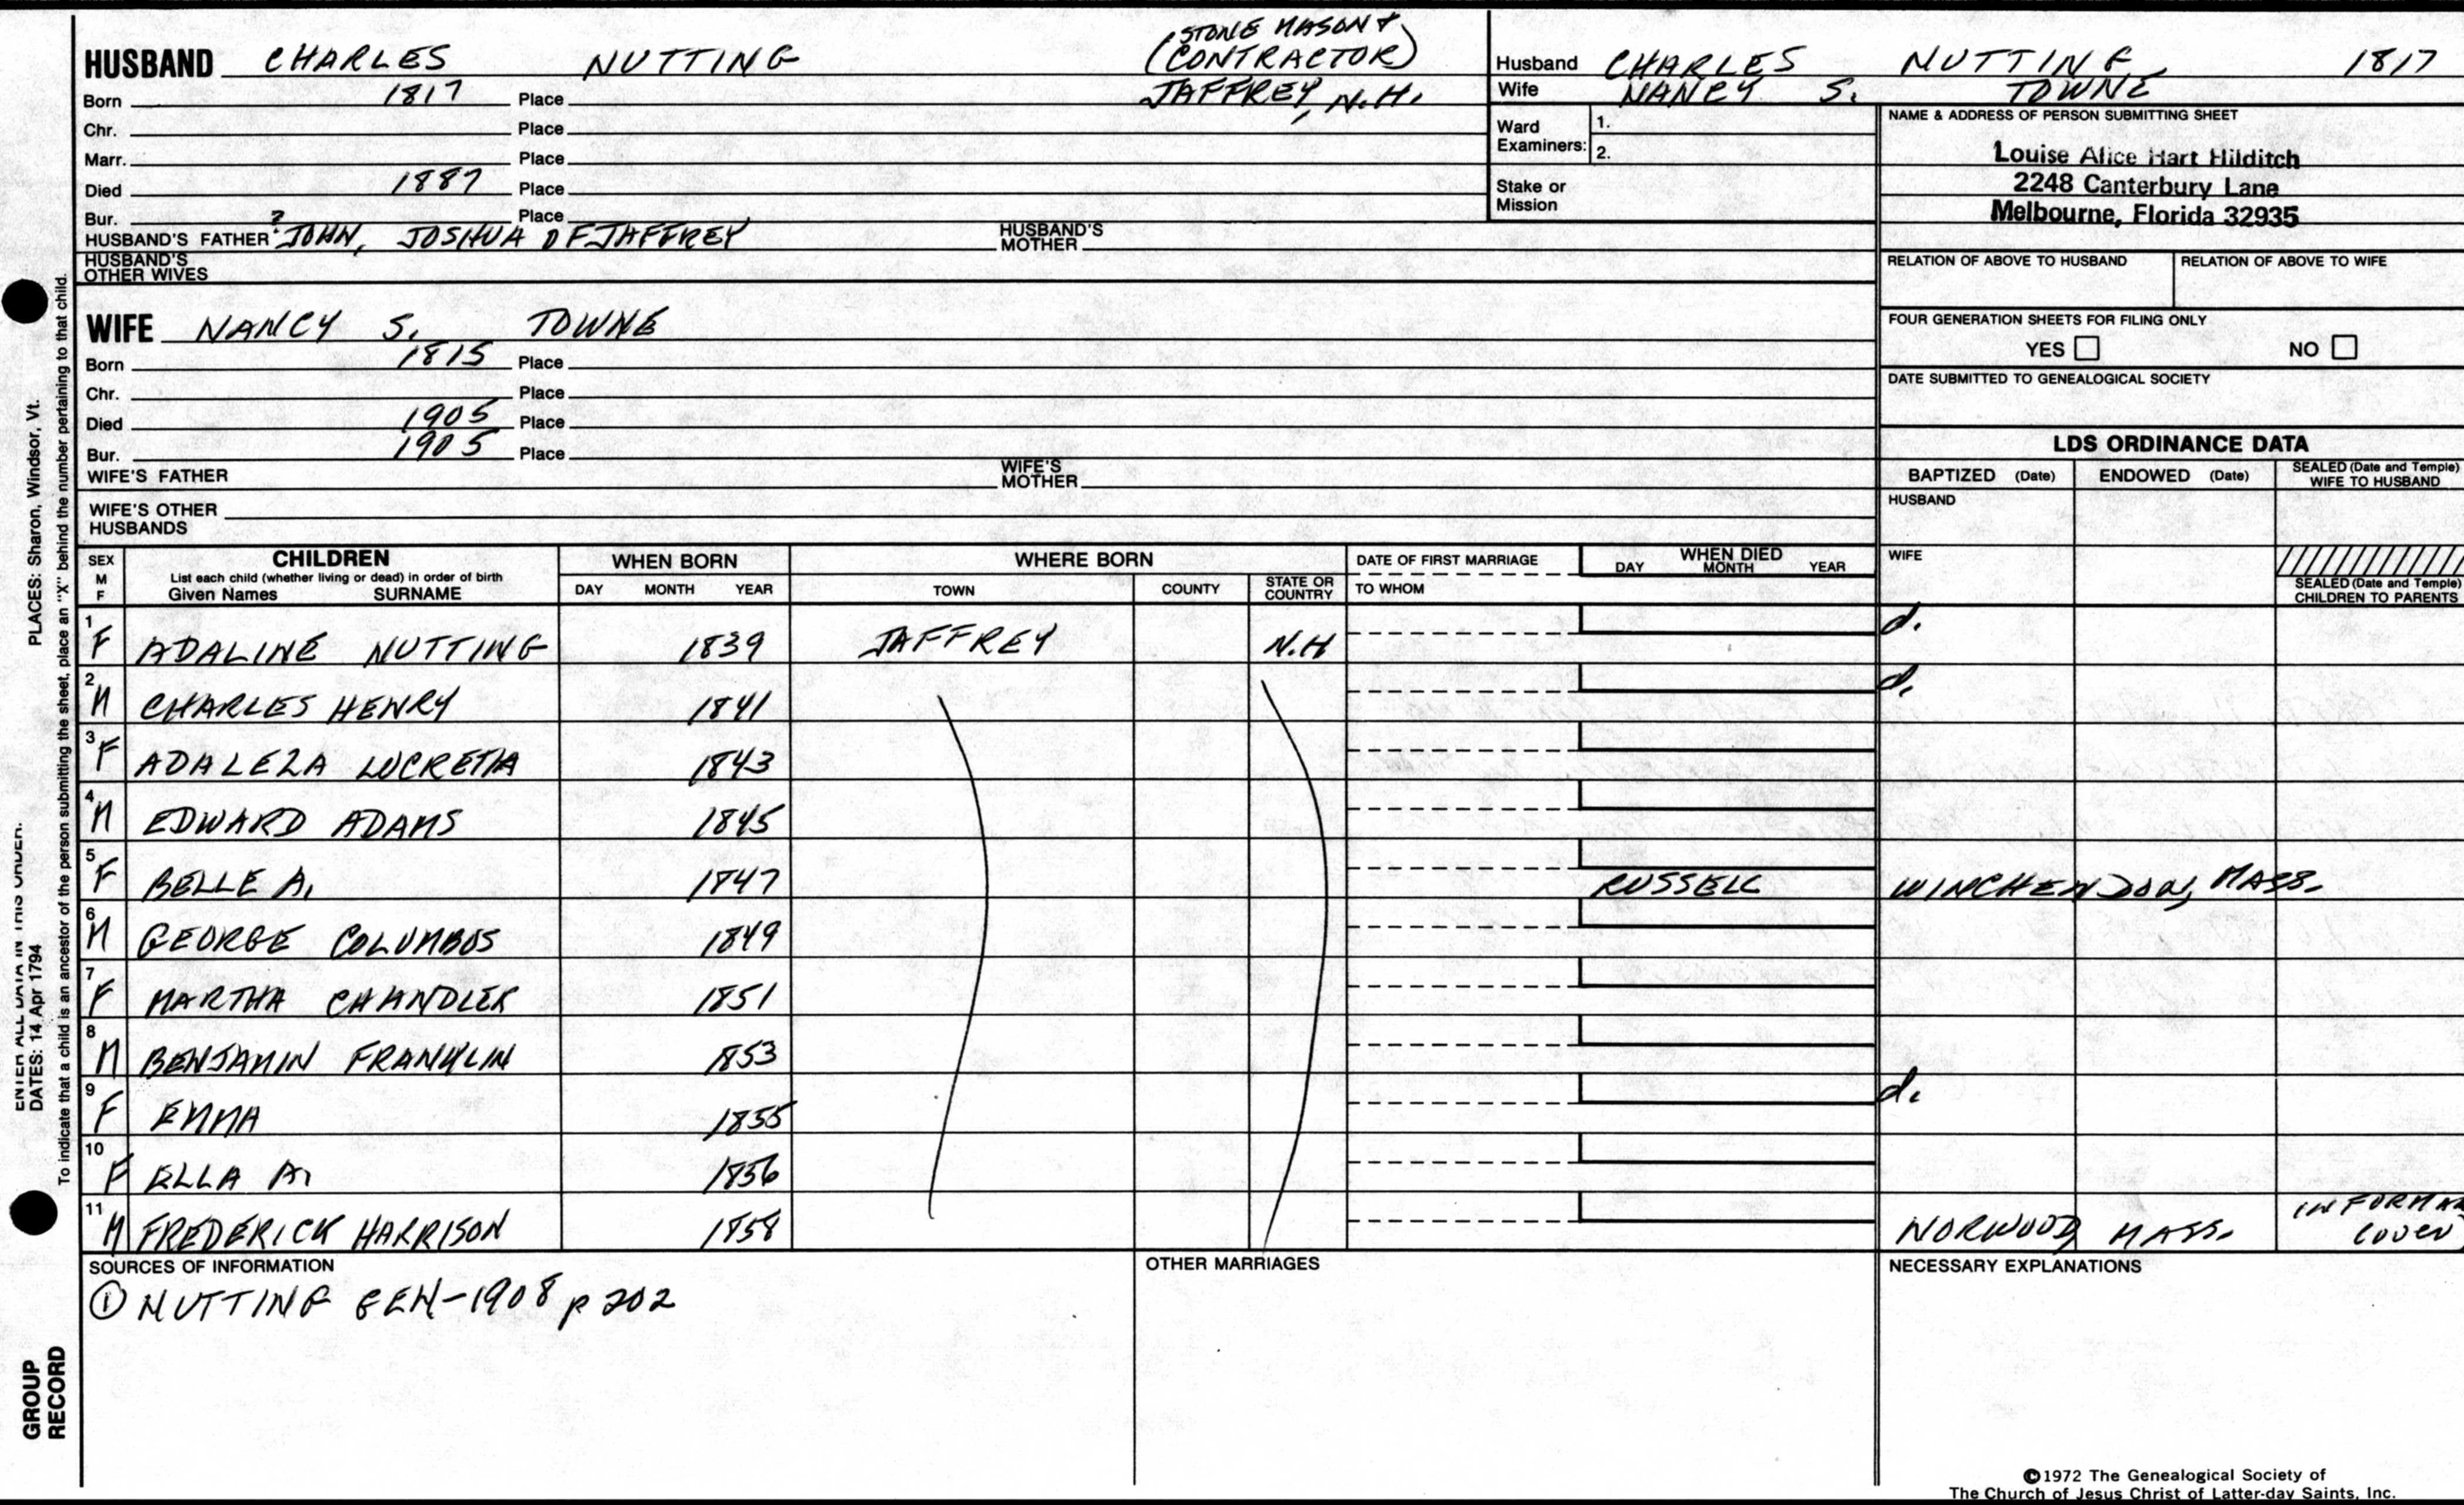 HUSBAND CHARLES NUTTING (STONE MASON & CONTRACTOR)
Born 1817 Place JAFFREY, N.H.
Chr. Place
Marr. Place
Died 1887 Place
Bur. Place
HUSBAND'S FATHER ? JOHN, JOSHUA OF JAFFREY HUSBAND'S MOTHER
HUSBAND'S OTHER WIVES
WIFE NANCY S. TOWNE
Born 1815 Place
Chr. Place
Died 1905 Place
Bur. 1905 Place
WIFE'S FATHER WIFE'S MOTHER
WIFE'S OTHER HUSBANDS
Husband CHARLES NUTTING 1817
Wife NANCY S. TOWNE
Ward Examiners: 1.
2.
Stake or Mission
NAME & ADDRESS OF PERSON SUBMITTING SHEET
Louise Alice Hart Hilditch
2248 Canterbury Lane
Melbourne, Florida 32935
RELATION OF ABOVE TO HUSBAND RELATION OF ABOVE TO WIFE
FOUR GENERATION SHEETS FOR FILING ONLY
YES NO
DATE SUBMITTED TO GENEALOGICAL SOCIETY
LDS ORDINANCE DATA
BAPTIZED (Date) ENDOWED (Date) SEALED (Date and Temple) WIFE TO HUSBAND
HUSBAND
WIFE
SEALED (Date and Temple) CHILDREN TO PARENTS
SEX M F CHILDREN WHEN BORN WHERE BORN DATE OF FIRST MARRIAGE WHEN DIED
List each child (whether living or dead) in order of birth
Given Names SURNAME DAY MONTH YEAR TOWN COUNTY STATE OR COUNTRY TO WHOM DAY MONTH YEAR
1 F ADALINE NUTTING 1839 JAFFREY N.H d.
2 M CHARLES HENRY 1841 d.
3 F ADALEZA LUCRETIA 1843
4 M EDWARD ADAMS 1845
5 F BELLE A. 1847 RUSSELL WINCHENDON, MASS.
6 M GEORGE COLUMBOS 1849
7 F MARTHA CHANDLER 1851
8 M BENJAMIN FRANKLIN 1853
9 F EMMA 1855 d.
10 F ELLA A. 1856
11 M FREDERICK HARRISON 1858 NORWOOD, MASS.
SOURCES OF INFORMATION OTHER MARRIAGES NECESSARY EXPLANATIONS
① NUTTING GEN-1908 p 202
©1972 The Genealogical Society of
The Church of Jesus Christ of Latter-day Saints, Inc.
DATES: 14 Apr 1794
PLACES: Sharon, Windsor, Vt.
To indicate that a child is an ancestor of the person submitting the sheet, place an "X" behind the number pertaining to that child.
GROUP
RECORD